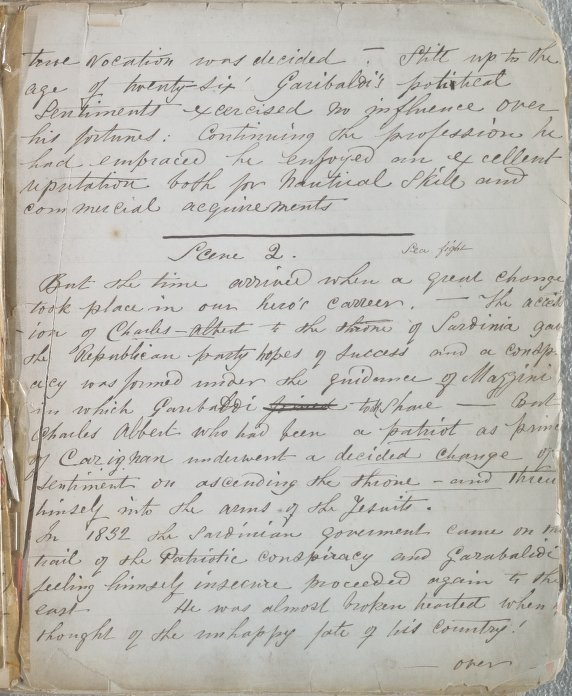 true Vocation was decided — Still up to the
age of twenty-six Garibaldi's political
Sentiments exercised no influence over
his fortunes: Continuing the profession he
had embraced he enjoyed an excellent
reputation both for Nautical Skill and
commercial acquirements
Scene 2. Sea fight
But the time arrived when a great change
took place in our hero's carreer. — The access
ion of Charles-Albert to the throne of Sardinia gave
the Republican party hopes of success and a conspir
acy was formed under the guidance of Mazzini
in which Garibaldi took share — But
Charles Albert who had been a patriot as prince
of Carignan underwent a decided change of
sentiment on ascending the throne — and threw
himself into the arms of the Jesuits.
In 1832 the Sardinian goverment came on the
trail of the Patriotic conspiracy and Garabaldi
feeling himself insecure proceeded again to the
east He was almost broken hearted when
thought of the unhappy fate of his country!
— over